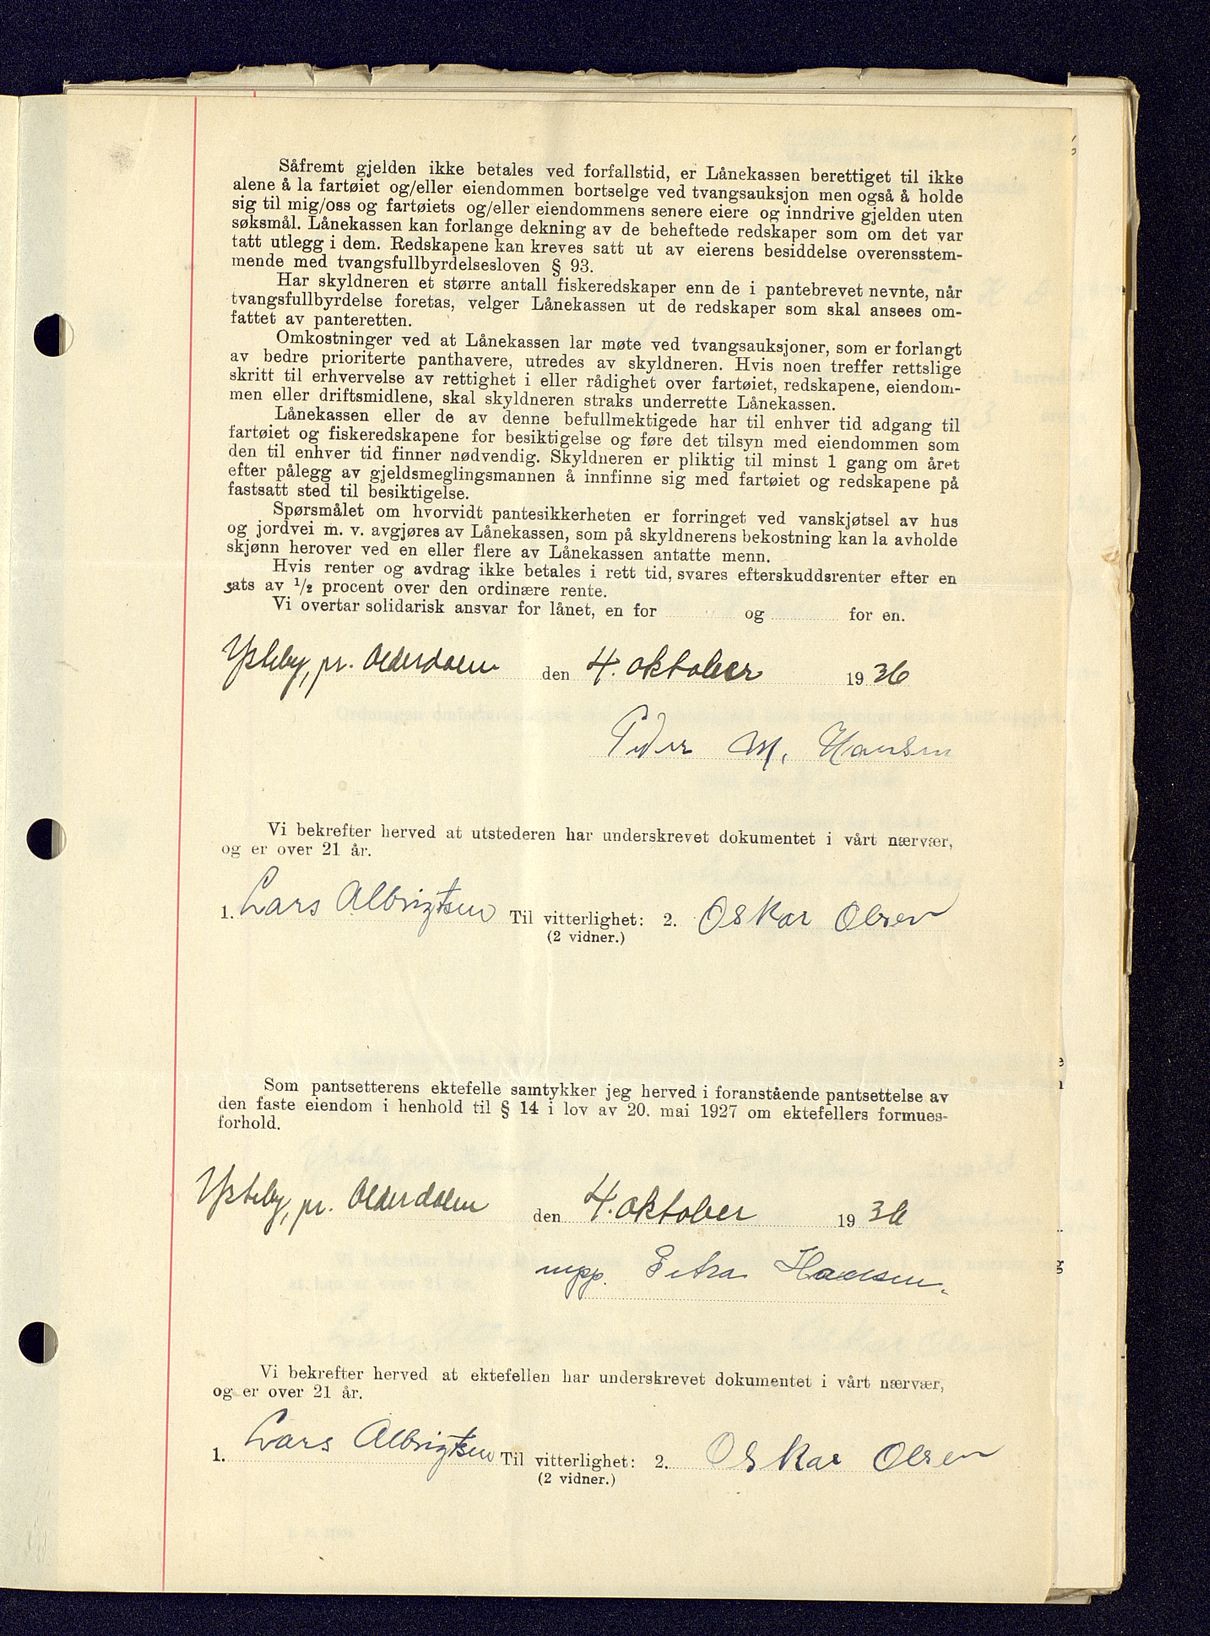 Såfremt gjelden ikke betales ved forfallstid, er Lånekassen berettiget til ikke
alene å la fartøiet og/eller eiendommen bortselge ved tvangsauksjon men også å holde
sig til mig/oss og fartøiets og/eller eiendommens senere eiere og inndrive gjelden uten
søksmål. Lånekassen kan forlange dekning av de beheftede redskaper som om det var
tatt utlegg i dem. Redskapene kan kreves satt ut av eierens besiddelse overensstem-
mende med tvangsfullbyrdelsesloven § 93.
Har skyldneren et større antall fiskeredskaper enn de i pantebrevet nevnte, når
tvangsfullbyrdelse foretas, velger Lånekassen ut de redskaper som skal ansees om-
fattet av panteretten.
Omkostninger ved at Lånekassen lar møte ved tvangsauksjoner, som er forlangt
av bedre prioriterte panthavere, utredes av skyldneren. Hvis noen treffer rettslige
skritt til erhvervelse av rettighet i eller rådighet over fartøiet, redskapene, eiendom-
men eller driftsmidlene, skal skyldneren straks underrette Lånekassen.
Lånekassen eller de av denne befullmektigede har til enhver tid adgang til
fartøiet og fiskeredskapene for besiktigelse og føre det tilsyn med eiendommen som
den til enhver tid finner nødvendig. Skyldneren er pliktig til minst 1 gang om året
efter pålegg av gjeldsmeglingsmannen å innfinne sig med fartøiet og redskapene på
fastsatt sted til besiktigelse.
Spørsmålet om hvorvidt pantesikkerheten er forringet ved vanskjøtsel av hus
og jordvei m. v. avgjøres av Lånekassen, som på skyldnerens bekostning kan la avholde
skjønn herover ved en eller flere av Lånekassen antatte menn.
Hvis renter og avdrag ikke betales i rett tid, svares efterskuddsrenter efter en
sats av 1/2 procent over den ordinære rente.
Vi overtar solidarisk ansvar for lånet, en for og for en.
Ysteby, pr. Olderdalen den 4. oktober 1936
Peder M. Hansen
Vi bekrefter herved at utstederen har underskrevet dokumentet i vårt nærvær,
og er over 21 år.
1. Lars Albrigtsen Til vitterlighet: 2. Oskar Olsen
(2 vidner.)
Som pantsetterens ektefelle samtykker jeg herved i foranstående pantsettelse av
den faste eiendom i henhold til § 14 i lov av 20. mai 1927 om ektefellers formues-
forhold.
Ysteby, pr. Olderdalen den 4. oktober 1936
mpp. Petra Hansen.
Vi bekrefter herved at ektefellen har underskrevet dokumentet i vårt nærvær,
og er over 21 år.
1. Lars Albrigtsen Til vitterlighet: 2. Oskar Olsen
(2 vidner.)